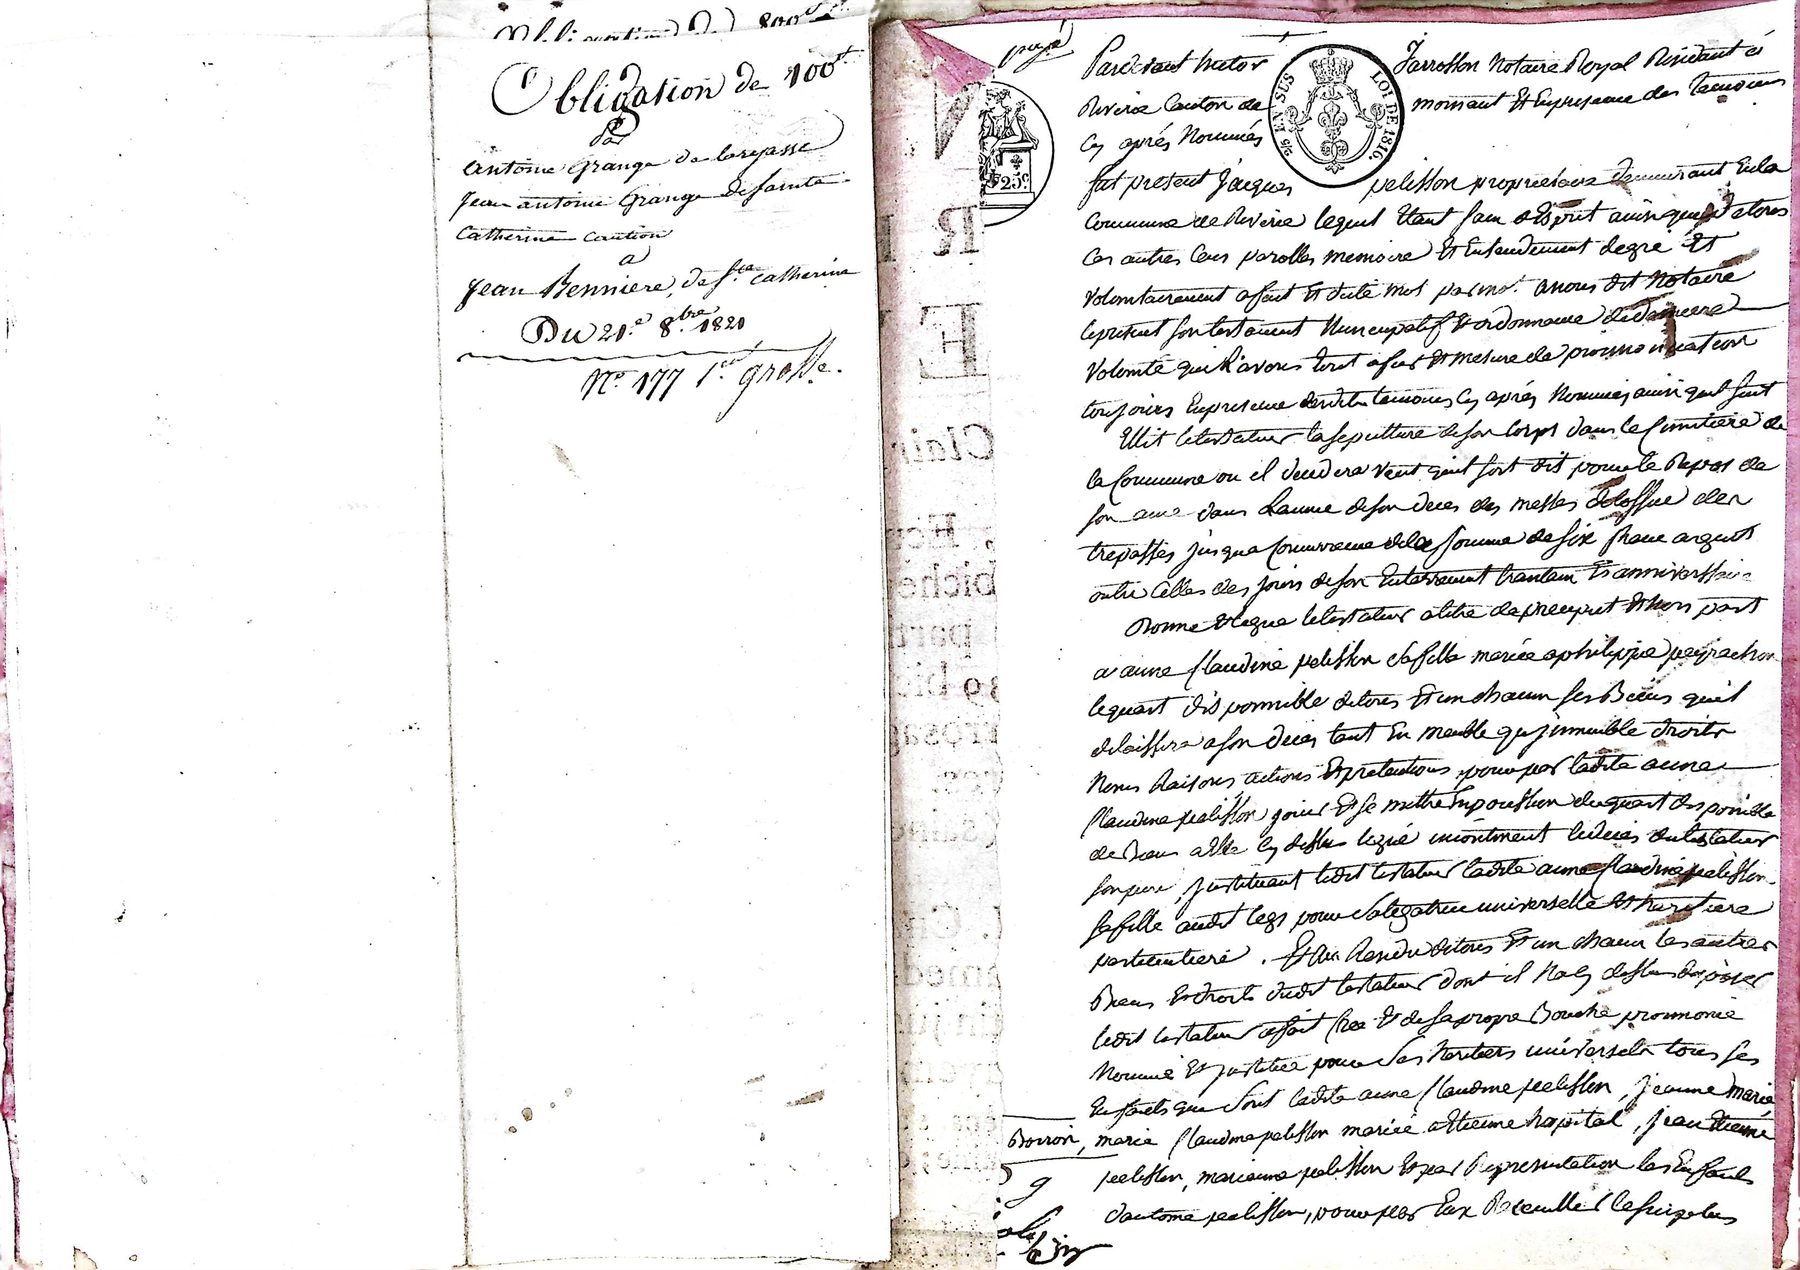 Obligation de 800
Obligation de 100
Par
antoine Grange de larajasse
Jean antoine Grange de Sainte
Catherine caution
a
Jean Benniere de Ste Catherine
Du 21e 8bre 1821
No 177 1ere grosse.
payé
EN SUS
LOI DE 1816.
25c
Pardevant hector Jarrosson Notaire Royal Residant à
Riverie Canton de mornant Et En presence des Temoins
Cy aprés Nommés
fut present Jacques pelisson proprietaire demeurant En la
Commune de Riverie lequel Etant sain d'Esprit ainsi que de tous
Ces autres Cens parolles memoire Et Entendement de gré Et
Volontairement a fait Et dicté mot par mot a nous dit Notaire
le present son testament Nuncupatif Et ordonnance de derniere
Volonté qu'il avons Ecrit a fur Et mesure de prononciation
toujours En presence desdits temoins Cy aprés Nommés ainsi quil suit
Ellit le testateur la sepulture de son Corps dans le Cimitiere de
la Commune ou il decedera veut quil soit dit pour le Repos de
son ame dans l'année de son deces des messes de l'office des
trepassés jusqua Concurrence de la somme de six franc argent
outre Celles des jours de son Enterrement trantain Et anniversaire
Donne Et legue le testateur a titre de preciput Et hors part
a anne Claudine pelisson sa fille mariée a philippe peyrachon
le quart disponnible de tous Et un chacun ses Biens quil
delaissera a son deces tant En meuble qu'immeuble droits
Noms Raisons actions Et pretentions pour par ladite anne
Claudine pelisson jouir Et se mettre En possession du quart disponible
de Biens a Elle Cy dessus legué incontinent le deces du testateur
son pere, jnstituant ledit testateur ladite anne Claudine pelisson
sa fille audit legs pour sa legatrice universelle Et heritiere
particuliere. Et au Residu de tous Et un chacun les autres
Biens Et droits dudit testateur dont il Na Cy dessus disposer
ledit testateur a fait Cree Et de sa propre Bouche prononcé
Nommé Et jnstitué pour ses heritiers universels tous ses
Enfants qui sont ladite anne Claudine pelisson, jeanne marie
Boiron, marie Claudine pelisson mariée a Etienne hopital, jean Etienne
pelisson, marianne pelisson Et par Representation les Enfants
d'antoine pelisson, pour par Eux Recueillir